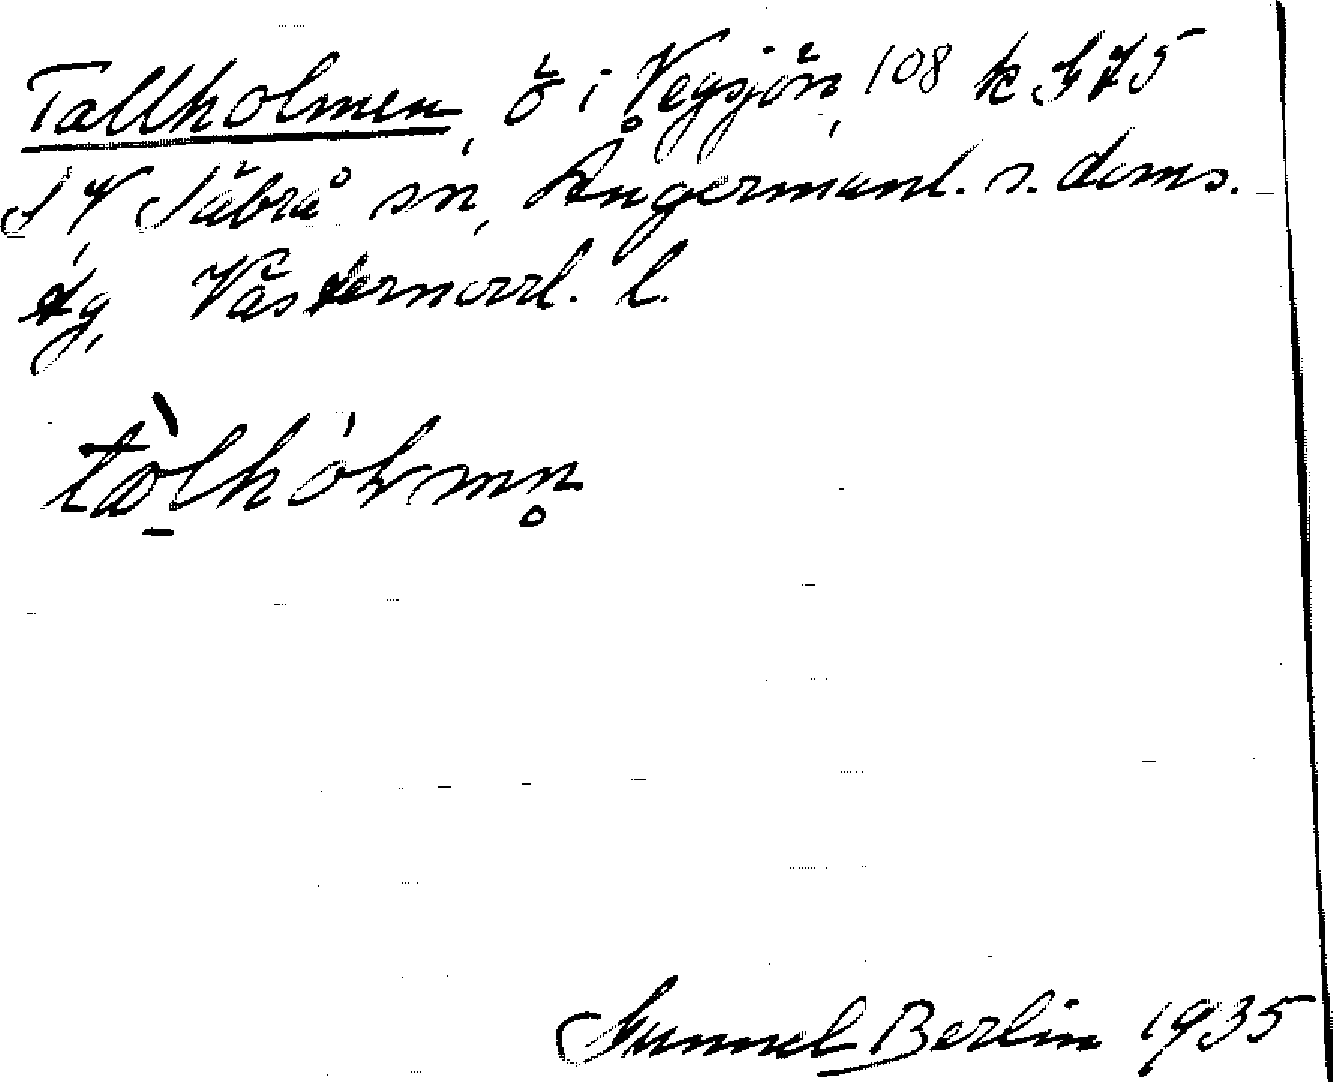 Tallholmen, ö i Vegsjön, 108 k F 75
S V, Säbrå sn, Ångermanl. s. doms.
dg, Västernorrl. l.
tàlhól mn̥
Gunnel Berlin 1935